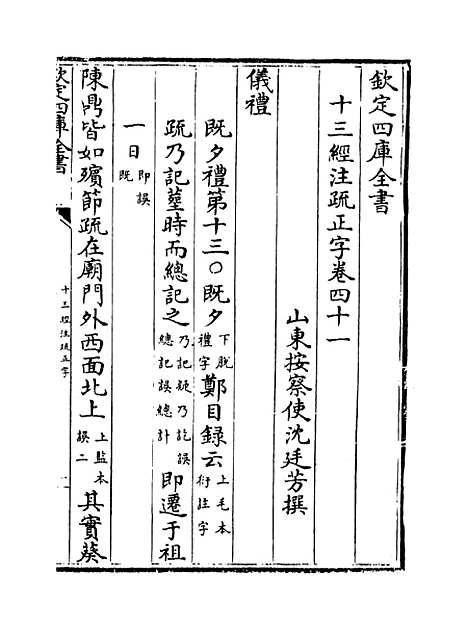 欽定四庫全書
十三經注疏正字卷四十一
山東按察使沈廷芳撰
儀禮
既夕禮第十三○既夕下脫禮字鄭目錄云上毛本衍注字
疏乃記塟時而總記之乃記疑乃訖誤總記誤總計即遷于祖
一日即誤既
陳鼎皆如殯節疏在廟門外西面北上上監本誤二其實葵
欽定四庫全書
十三經注疏正字
一